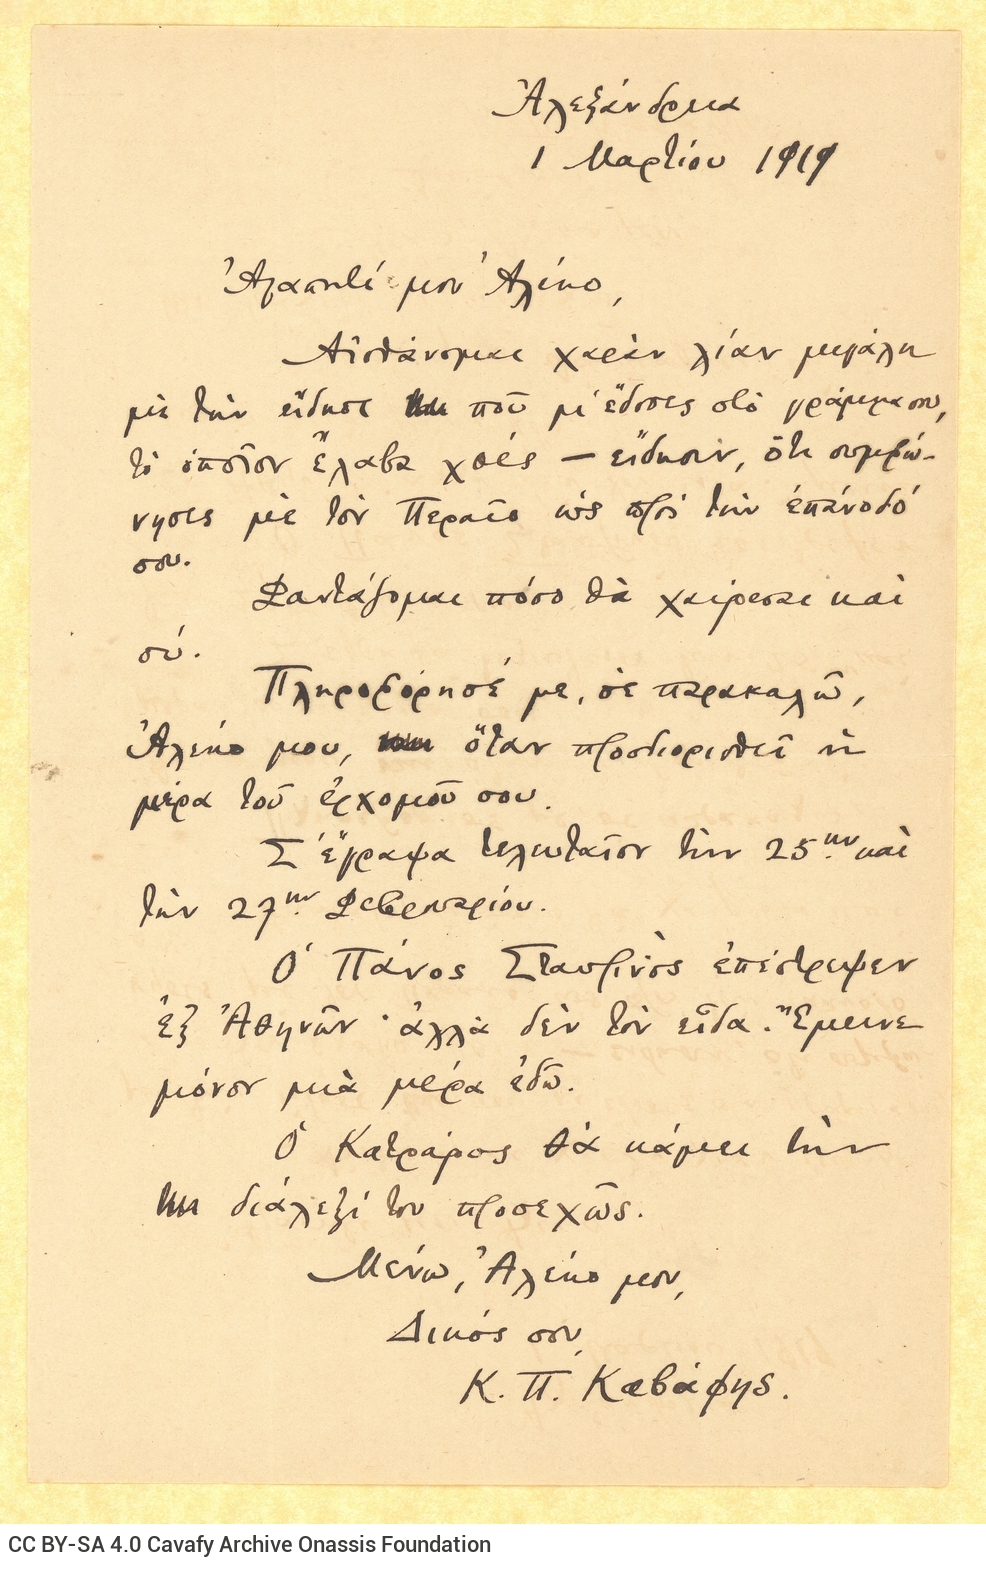 Ἀλεξάνδρεια
1 Μαρτίου 1919
Ἀγαπητέ μου Ἀλέκο,
Αἰσθάνομαι χαρὰν λίαν μεγάλη
μὲ τὴν εἴδησι ποῦ μ' ἔδοσες στὸ γράμμα σου,
τὸ ὁποῖον ἔλαβα χθές — εἴδησιν, ὅτι συμφώ-
νησες μὲ τὸν Περαῖο ὡς πρὸς τὴν ἐπάνοδό
σου.
Φαντάζομαι πόσο θὰ χαίρεσαι καὶ
σύ.
Πληροφόρησέ με, σὲ παρακαλῶ,
Ἀλέκο μου, ὅταν προσδιορισθεῖ ἡ
μέρα τοῦ ἐρχομοῦ σου.
Σ' ἔγραψα τελευταῖον τὴν 25ην καὶ
τὴν 27ην Φεβρουαρίου.
Ὁ Πάνος Σταυρινὸς ἐπέστρεψεν
ἐξ Ἀθηνῶν · ἀλλὰ δὲν τὸν εἶδα. Ἔμεινε
μόνον μιὰ μέρα ἐδῶ.
Ὁ Κατράρος θὰ κάμει τὴν
διάλεξί του προσεχῶς.
Μένω, Ἀλέκο μου,
Δικός σου,
Κ. Π. Καβάφης.
CC BY-SA 4.0 Cavafy Archive Onassis Foundation